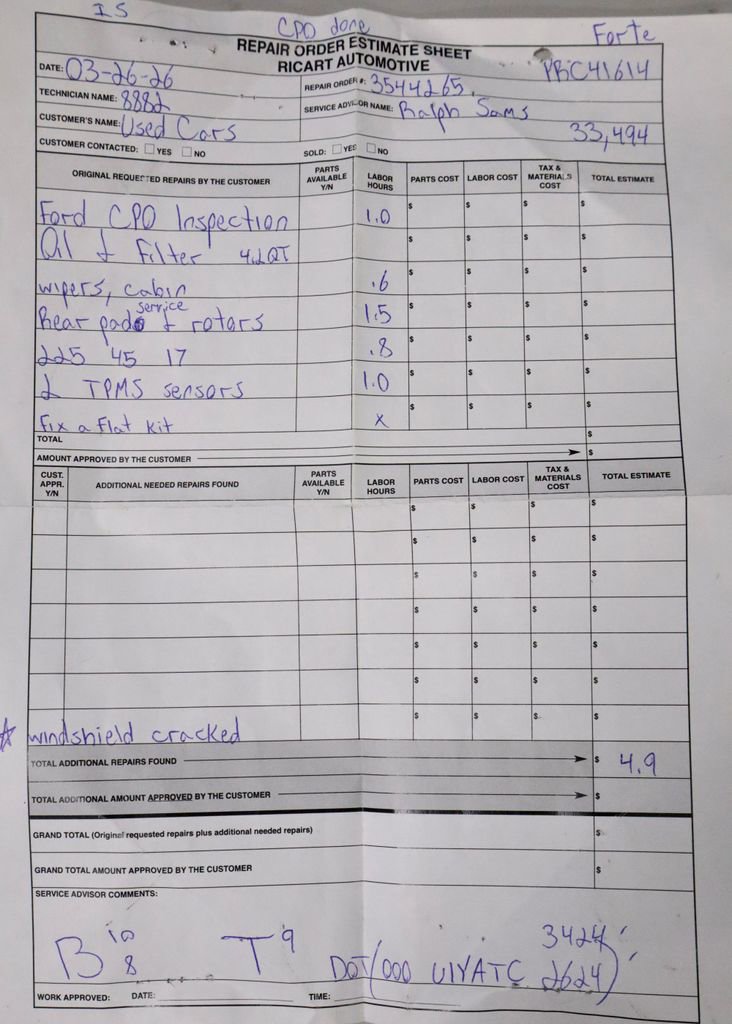 IS
CPO done
Forte
REPAIR ORDER ESTIMATE SHEET
RICART AUTOMOTIVE
PRC41614
DATE: 03-26-26
REPAIR ORDER #: 3544265
TECHNICIAN NAME: 8882
SERVICE ADVISOR NAME: Ralph Sams
CUSTOMER'S NAME: Used Cars
33,494
CUSTOMER CONTACTED: ☐ YES ☐ NO
SOLD: ☐ YES ☐ NO
ORIGINAL REQUESTED REPAIRS BY THE CUSTOMER PARTS AVAILABLE Y/N LABOR HOURS PARTS COST LABOR COST TAX & MATERIALS COST TOTAL ESTIMATE
Ford CPO Inspection 1.0 $ $ $ $
Oil & Filter 4.2QT $ $ $ $
wipers, cabin .6 $ $ $ $
Rear pads service & rotors 1.5 $ $ $ $
225 45 17 .8 $ $ $ $
2 TPMS sensors 1.0 $ $ $ $
Fix a Flat Kit x $ $ $ $
TOTAL $
AMOUNT APPROVED BY THE CUSTOMER $
CUST. APPR. Y/N ADDITIONAL NEEDED REPAIRS FOUND PARTS AVAILABLE Y/N LABOR HOURS PARTS COST LABOR COST TAX & MATERIALS COST TOTAL ESTIMATE
$ $ $ $
$ $ $ $
$ $ $ $
$ $ $ $
$ $ $ $
$ $ $ $
windshield cracked $ $ $ $
TOTAL ADDITIONAL REPAIRS FOUND $ 4.9
TOTAL ADDITIONAL AMOUNT APPROVED BY THE CUSTOMER $
GRAND TOTAL (Original requested repairs plus additional needed repairs) $
GRAND TOTAL AMOUNT APPROVED BY THE CUSTOMER $
SERVICE ADVISOR COMMENTS:
B 10 8 T 9
3424
DOT/000 U1YATC 2624
WORK APPROVED: DATE: TIME: